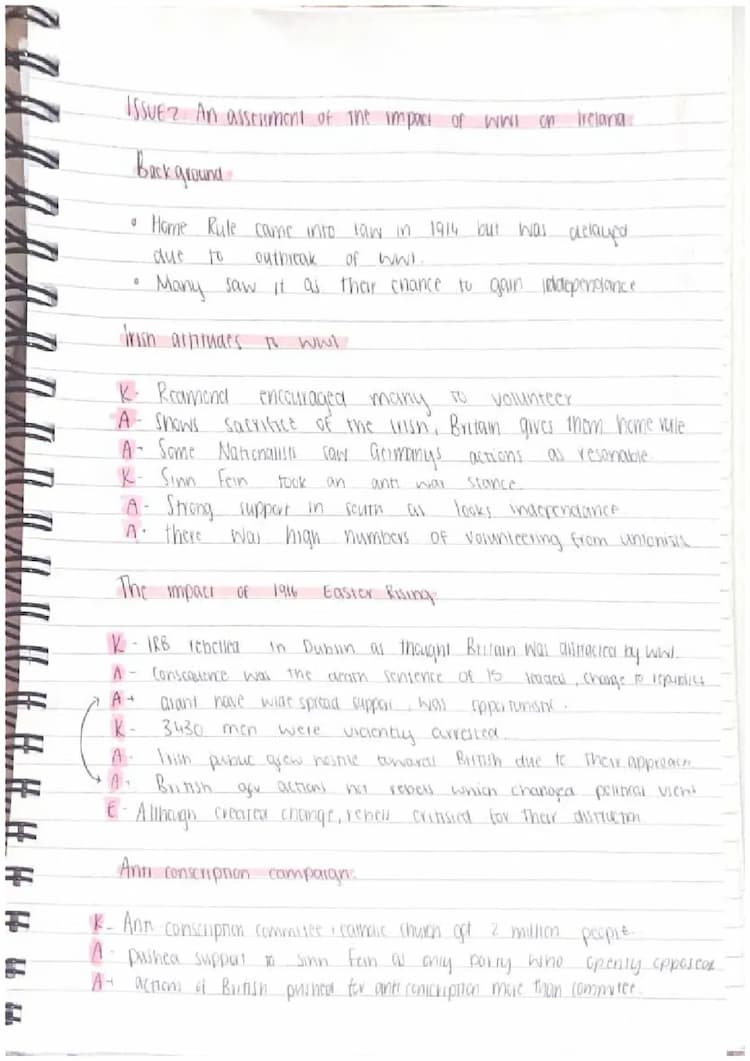 ISSUE2 An assessment of the impact of WWI on Ireland.
Background
• Home Rule came into law in 1914 but was delayed
due to outbreak of WWI.
• Many saw it as their chance to gain independance
Irish attitudes to WWI
K- Redmond encouraged many to volunteer
A- Shows sacrifice of the Irish, Britain gives them home rule
A- Some Nationalists saw Germanys actions as resonable.
K- Sinn Fein took an anti war stance.
A- Strong support in south as looks independance
A- there was high numbers of volunteering from unionists
The impact of 1916 Easter Rising
K- IRB rebelled in Dublin as thought Britain was distracted by WWI.
A- Consequence was the death sentence of 15 leaders, change to republics
A+ didnt have wide spread support, was opportunistic.
K- 3430 men were violently arrested.
A- Irish public grew hostile towards British due to their approach.
A+ British gov actions not rebels which changed political views
E- Although created change, rebels critisied for their distruction.
Anti conscription campaign.
K- Anti conscription committee + catholic church got 2 million people.
A- pushed support to Sinn Fein as only party who openly opposed
A+ actions of British pushed for anti conscription more than commitee.